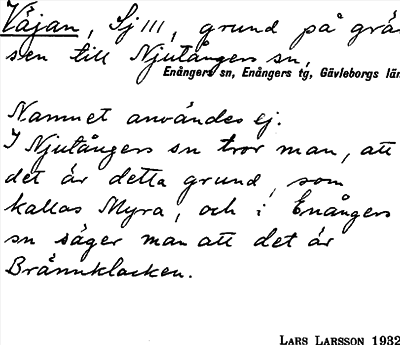 Våjan, Sj III, grund på grän
sen till Njutångers sn,
Enångers sn, Enångers tg, Gävleborgs län
Namnet användes ej.
I Njutångers sn tror man, att
det är detta grund, som
kallas Myra, och i Enångers
sn säger man att det är
Brännklacken.
LARS LARSSON 1932